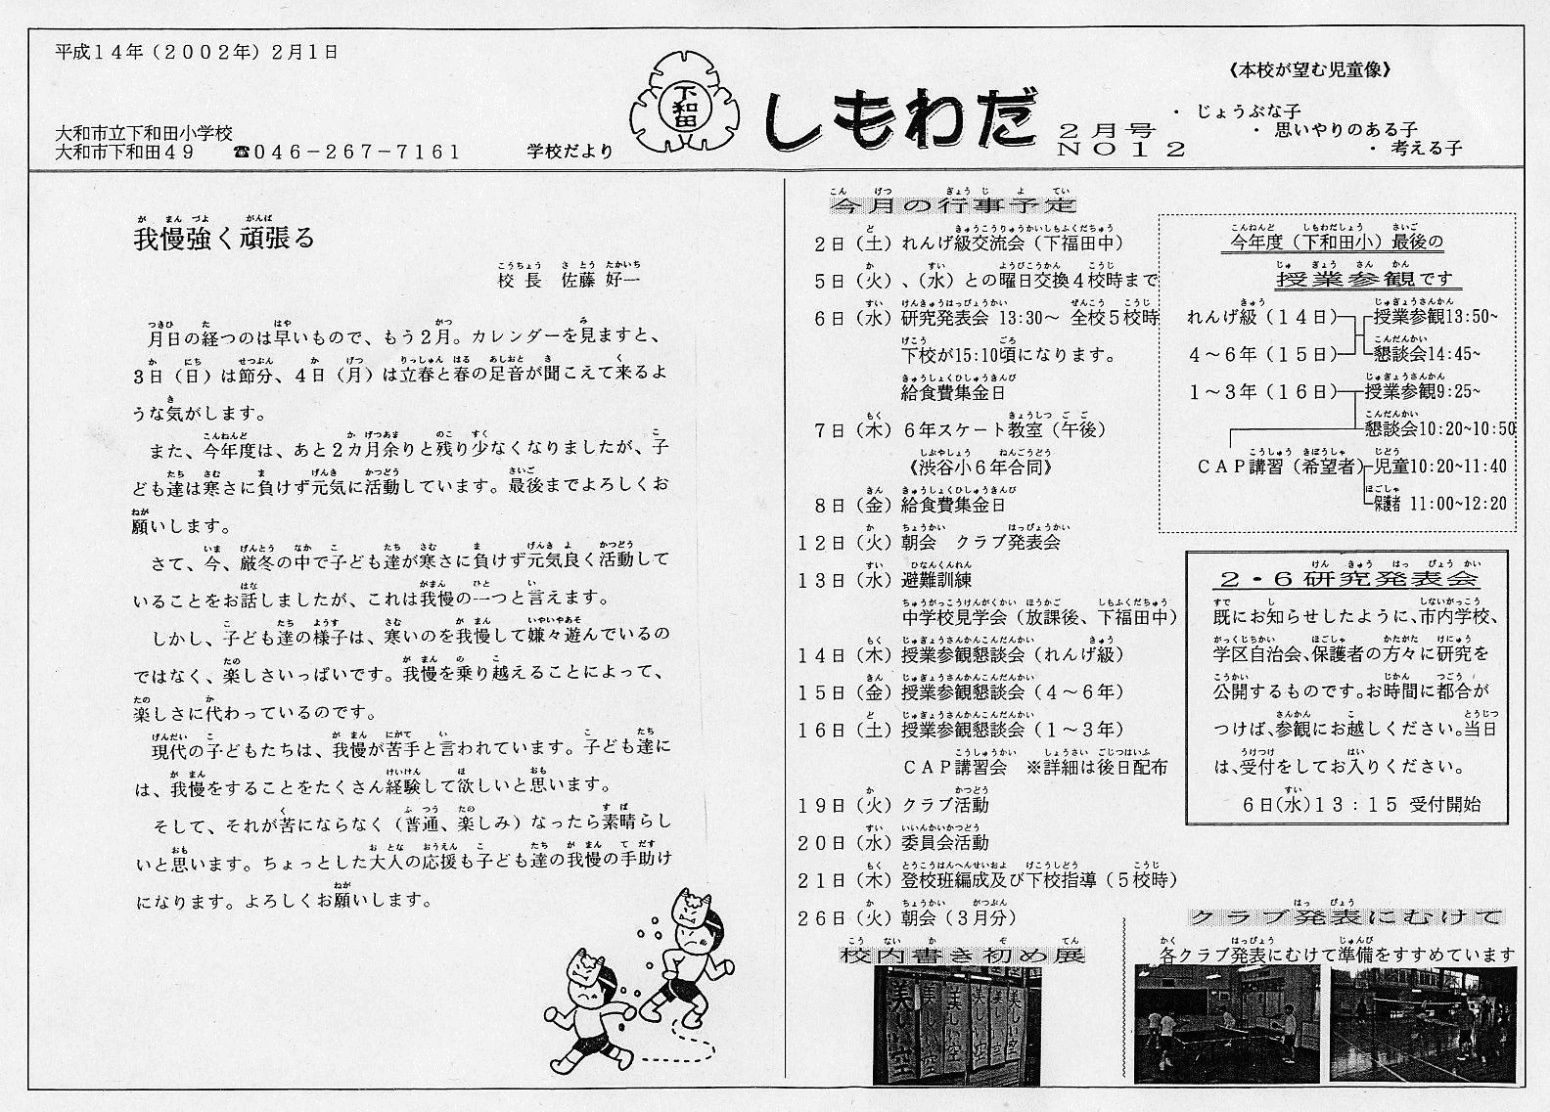 平成14年(2002年)2月1日
大和市立下和田小学校
大和市下和田49　☎046-267-7161
学校だより
下和田
しもわだ
2月号
NO12
《本校が望む児童像》
・じょうぶな子
・思いやりのある子
・考える子
我慢強く頑張る
校長　佐藤 好一
月日の経つのは早いもので、もう2月。カレンダーを見ますと、
3日(日)は節分、4日(月)は立春と春の足音が聞こえて来るよ
うな気がします。
また、今年度は、あと2カ月余りと残り少なくなりましたが、子
ども達は寒さに負けず元気に活動しています。最後までよろしくお
願いします。
さて、今、厳冬の中で子ども達が寒さに負けず元気良く活動して
いることをお話しましたが、これは我慢の一つと言えます。
しかし、子ども達の様子は、寒いのを我慢して嫌々遊んでいるの
ではなく、楽しさいっぱいです。我慢を乗り越えることによって、
楽しさに代わっているのです。
現代の子どもたちは、我慢が苦手と言われています。子ども達に
は、我慢をすることをたくさん経験して欲しいと思います。
そして、それが苦にならなく(普通、楽しみ)なったら素晴らし
いと思います。ちょっとした大人の応援も子ども達の我慢の手助け
になります。よろしくお願いします。
今月の行事予定
2日(土)れんげ級交流会(下福田中)
5日(火)、(水)との曜日交換4校時まで
6日(水)研究発表会 13:30～ 全校5校時
下校が15:10頃になります。
給食費集金日
7日(木)6年スケート教室(午後)
《渋谷小6年合同》
8日(金)給食費集金日
12日(火)朝会　クラブ発表会
13日(水)避難訓練
中学校見学会(放課後、下福田中)
14日(木)授業参観懇談会(れんげ級)
15日(金)授業参観懇談会(4～6年)
16日(土)授業参観懇談会(1～3年)
CAP講習会　※詳細は後日配布
19日(火)クラブ活動
20日(水)委員会活動
21日(木)登校班編成及び下校指導(5校時)
26日(火)朝会(3月分)
校内書き初め展
美しい空
美しい空
美しい空
美しい空
美しい空
今年度(下和田小)最後の
授業参観です
れんげ級(14日)　授業参観13:50~
4～6年(15日)　懇談会14:45~
1～3年(16日)　授業参観9:25~
懇談会10:20~10:50
CAP講習(希望者)　児童10:20~11:40
保護者 11:00~12:20
2・6研究発表会
既にお知らせしたように、市内学校、
学区自治会、保護者の方々に研究を
公開するものです。お時間に都合が
つけば、参観にお越しください。当日
は、受付をしてお入りください。
6日(水)13：15 受付開始
クラブ発表にむけて
各クラブ発表にむけて準備をすすめています